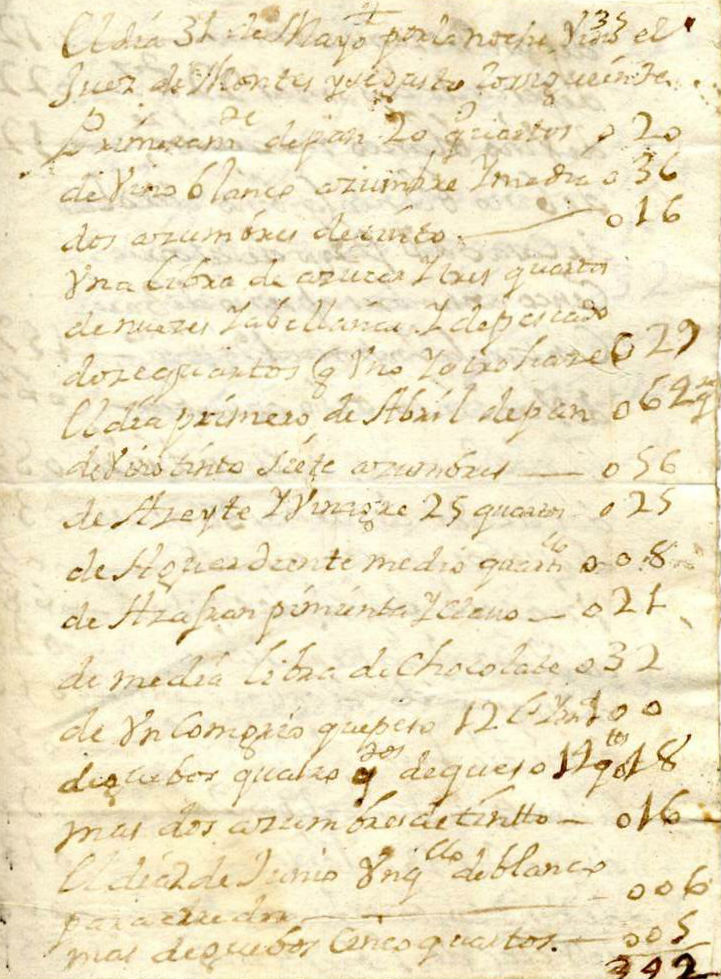 El dia 31 de Mayo por la noche Vino el
Juez de Montes y se gasto lo siguiente
Primeram.te de pan 20 quartos 020
de Vino blanco azumbre Y media 036
dos azumbres de tinto 016
Vna libra de azucar Y tres quartos
de nuezes Y abellanas Y de pescado
doze quartos q Vno Y otro haze 029
El dia primero de Abril de pan 064
de Vino tinto siete azumbres 056
de Azeyte Y Vinagre 25 quartos 025
de Aguardiente medio quartillo 008
de Azafran pimienta Y Clavo 021
de media libra de Chocolate 032
de Vn Congrio que peso 12 100
de guebos quatro de queso 14 q.tos 018
mas dos azumbres de tintto 016
El dia 2 de Junio Vn q.llo de blanco
para 006
mas de guebos Cinco quartos. 005
392